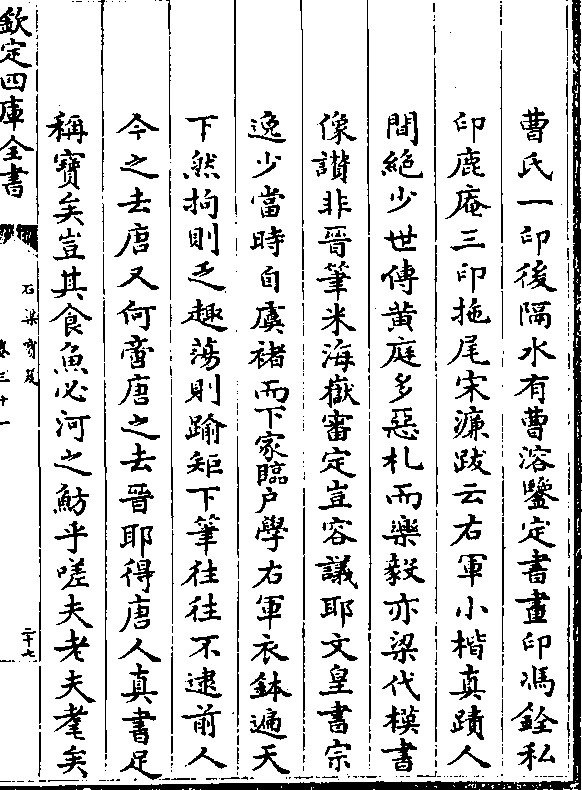 曹氏一印後隔水有曹溶鑒定書畫印馮銓私
印鹿庵三印拖尾宋濂跋云右軍小楷真蹟人
間絶少世傳黄庭多惡札而樂毅亦梁代模書
像讃非晉筆米海嶽審定豈容議耶文皇書宗
逸少當時自虞褚而下家臨户學右軍衣鉢遍天
下然拘則乏趣蕩則踰矩下筆往往不逮前人
今之去唐又何啻唐之去晉耶得唐人真書足
稱寶矣豈其食魚必河之魴乎嗟夫老夫耄矣
欽定四庫全書
石渠寳笈
卷三十一
二十七